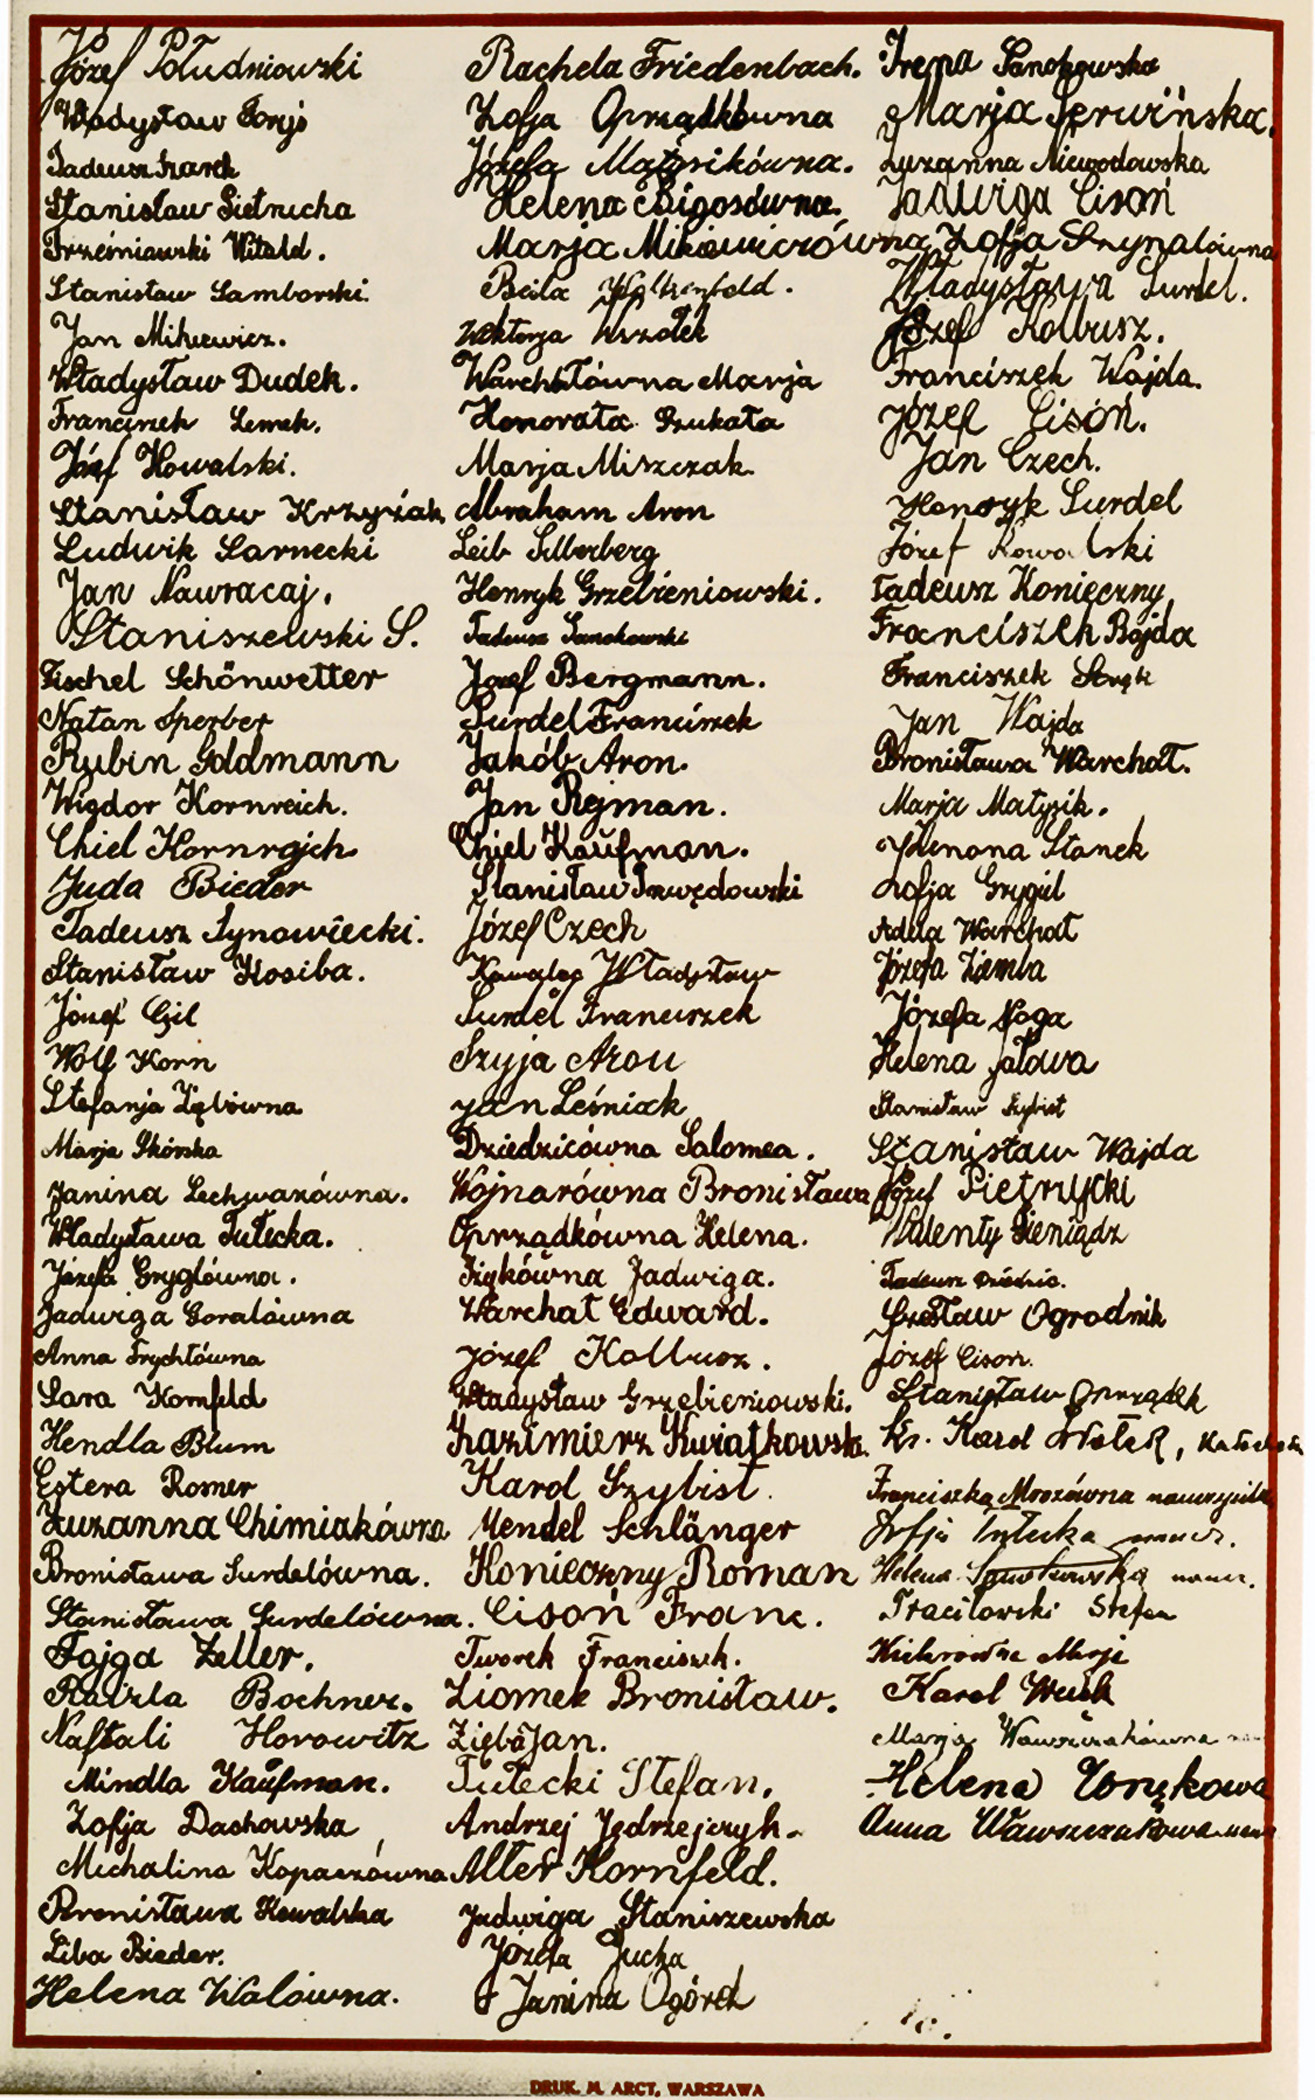 Józef Południowski
Władysław Boryś
Tadeusz Szarek
Stanisław Pietrucha
Trześniawski Witold.
Stanisław Samborski.
Jan Mikiewicz.
Władysław Dudek.
Franciszek Lemek.
Józef Kowalski.
Stanisław Krzyżak
Ludwik Sarnecki
Jan Nawracaj.
Staniszewski S.
Fischel Schönwetter
Natan Sperber
Rubin Goldmann
Wigdor Kornreich.
Chiel Kornrajch
Juda Bieder
Tadeusz Synowiecki.
Stanisław Kosiba.
Józef Gil
Wolf Korn
Stefanja Ziębówna
Marja Skórska
Janina Lechwarówna.
Władysława Tułecka.
Józefa Gryglówna.
Jadwiga Goralówna
Anna Frychtówna
Sara Kornfeld
Hendla Blum
Estera Romer
Zuzanna Chimiakówna
Bronisława Surdelówna.
Stanisława Surdelówna.
Fajga Zeller.
Raizla Bochner.
Naftali Horowitz
Mindla Kaufman.
Zofja Dachowska
Michalina Kopaczówna
Bronisława Kowalska
Liba Bieder.
Helena Walówna.
Rachela Friedenbach.
Zofja Oprządkówna
Józefa Matysikówna.
Helena Bigosówna.
Marja Mikiewiczówna
Beila
Wiktorja Wszołek
Warchałówna Marja
Honorata Szukała
Marja Miszczak.
Abraham Aron
Leib Silberberg
Henryk Grzebieniowski.
Tadeusz Sanokowski
Józef Bergmann.
Surdel Franciszek
Jakób Aron.
Jan Rejman.
Chiel Kaufman.
Stanisław Szwędowski
Józef Czech
Kowalec Władysław
Surdel Franciszek
Szyja Aron
Jan Leśniak
Dziedzicówna Salomea.
Wojnarówna Bronisława
Oprządkówna Helena.
Ziękówna Jadwiga.
Warchał Edward.
Józef Kolbusz.
Władysław Grzebieniowski.
Kazimierz Kwiatkowski.
Karol Szybist.
Mendel Schlänger
Konieczny Roman
Cisoń Franc.
Tworek Franciszek.
Ziomek Bronisław.
Zięba Jan.
Tułecki Stefan.
Andrzej Jędrzejczyk.
Alter Kornfeld.
Jadwiga Staniszewska
Józefa Jucha
Janina Ogórek
Irena Sanokowska
Marja Serwińska.
Zuzanna Niewodowska
Jadwiga Cisoń
Zofja Szynalówna
Władysława Surdel.
Józef Kolbusz.
Franciszek Wajda.
Józef Cisoń.
Jan Czech.
Henryk Surdel
Józef Kowalski
Tadeusz Konieczny
Franciszek Bojda
Franciszek
Jan Wajda
Bronisława Warchał.
Marja Matysik.
Stanek
Zofja Grygiel
Adela Warchał
Józefa Ziemba
Józefa Noga
Helena Jaława
Stanisław Szybist
Stanisław Wajda
Józef Pietrzycki
Walenty Pieniądz
Tadeusz Dziedzic.
Czesław Ogrodnik
Józef Cison.
Stanisław Oprządek
Ks. Karol Wołek, katecheta
Franciszka Mrozówna nauczyciel
Zofja Tułecka naucz.
Helena Sanokowska naucz.
Stefan
Marja
Karol
Marja Wawszczakówna
Helena
Anna Wawszczakowa
DRUK. M. ARCT, WARSZAWA